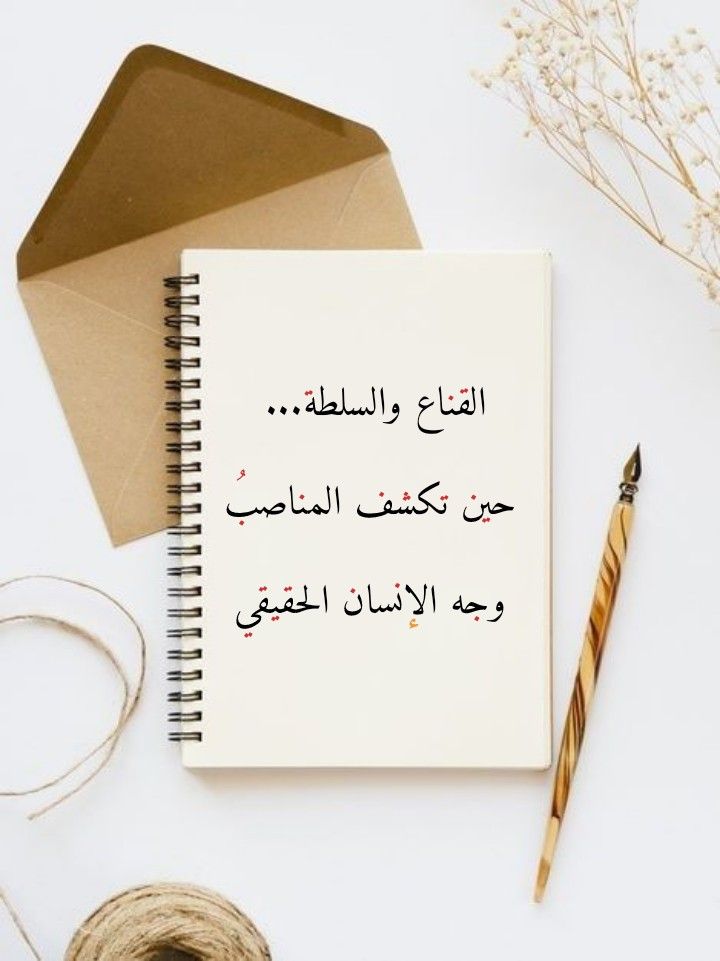 القناع والسلطة...
حين تكشف المناصبُ
وجه الإنسان الحقيقي